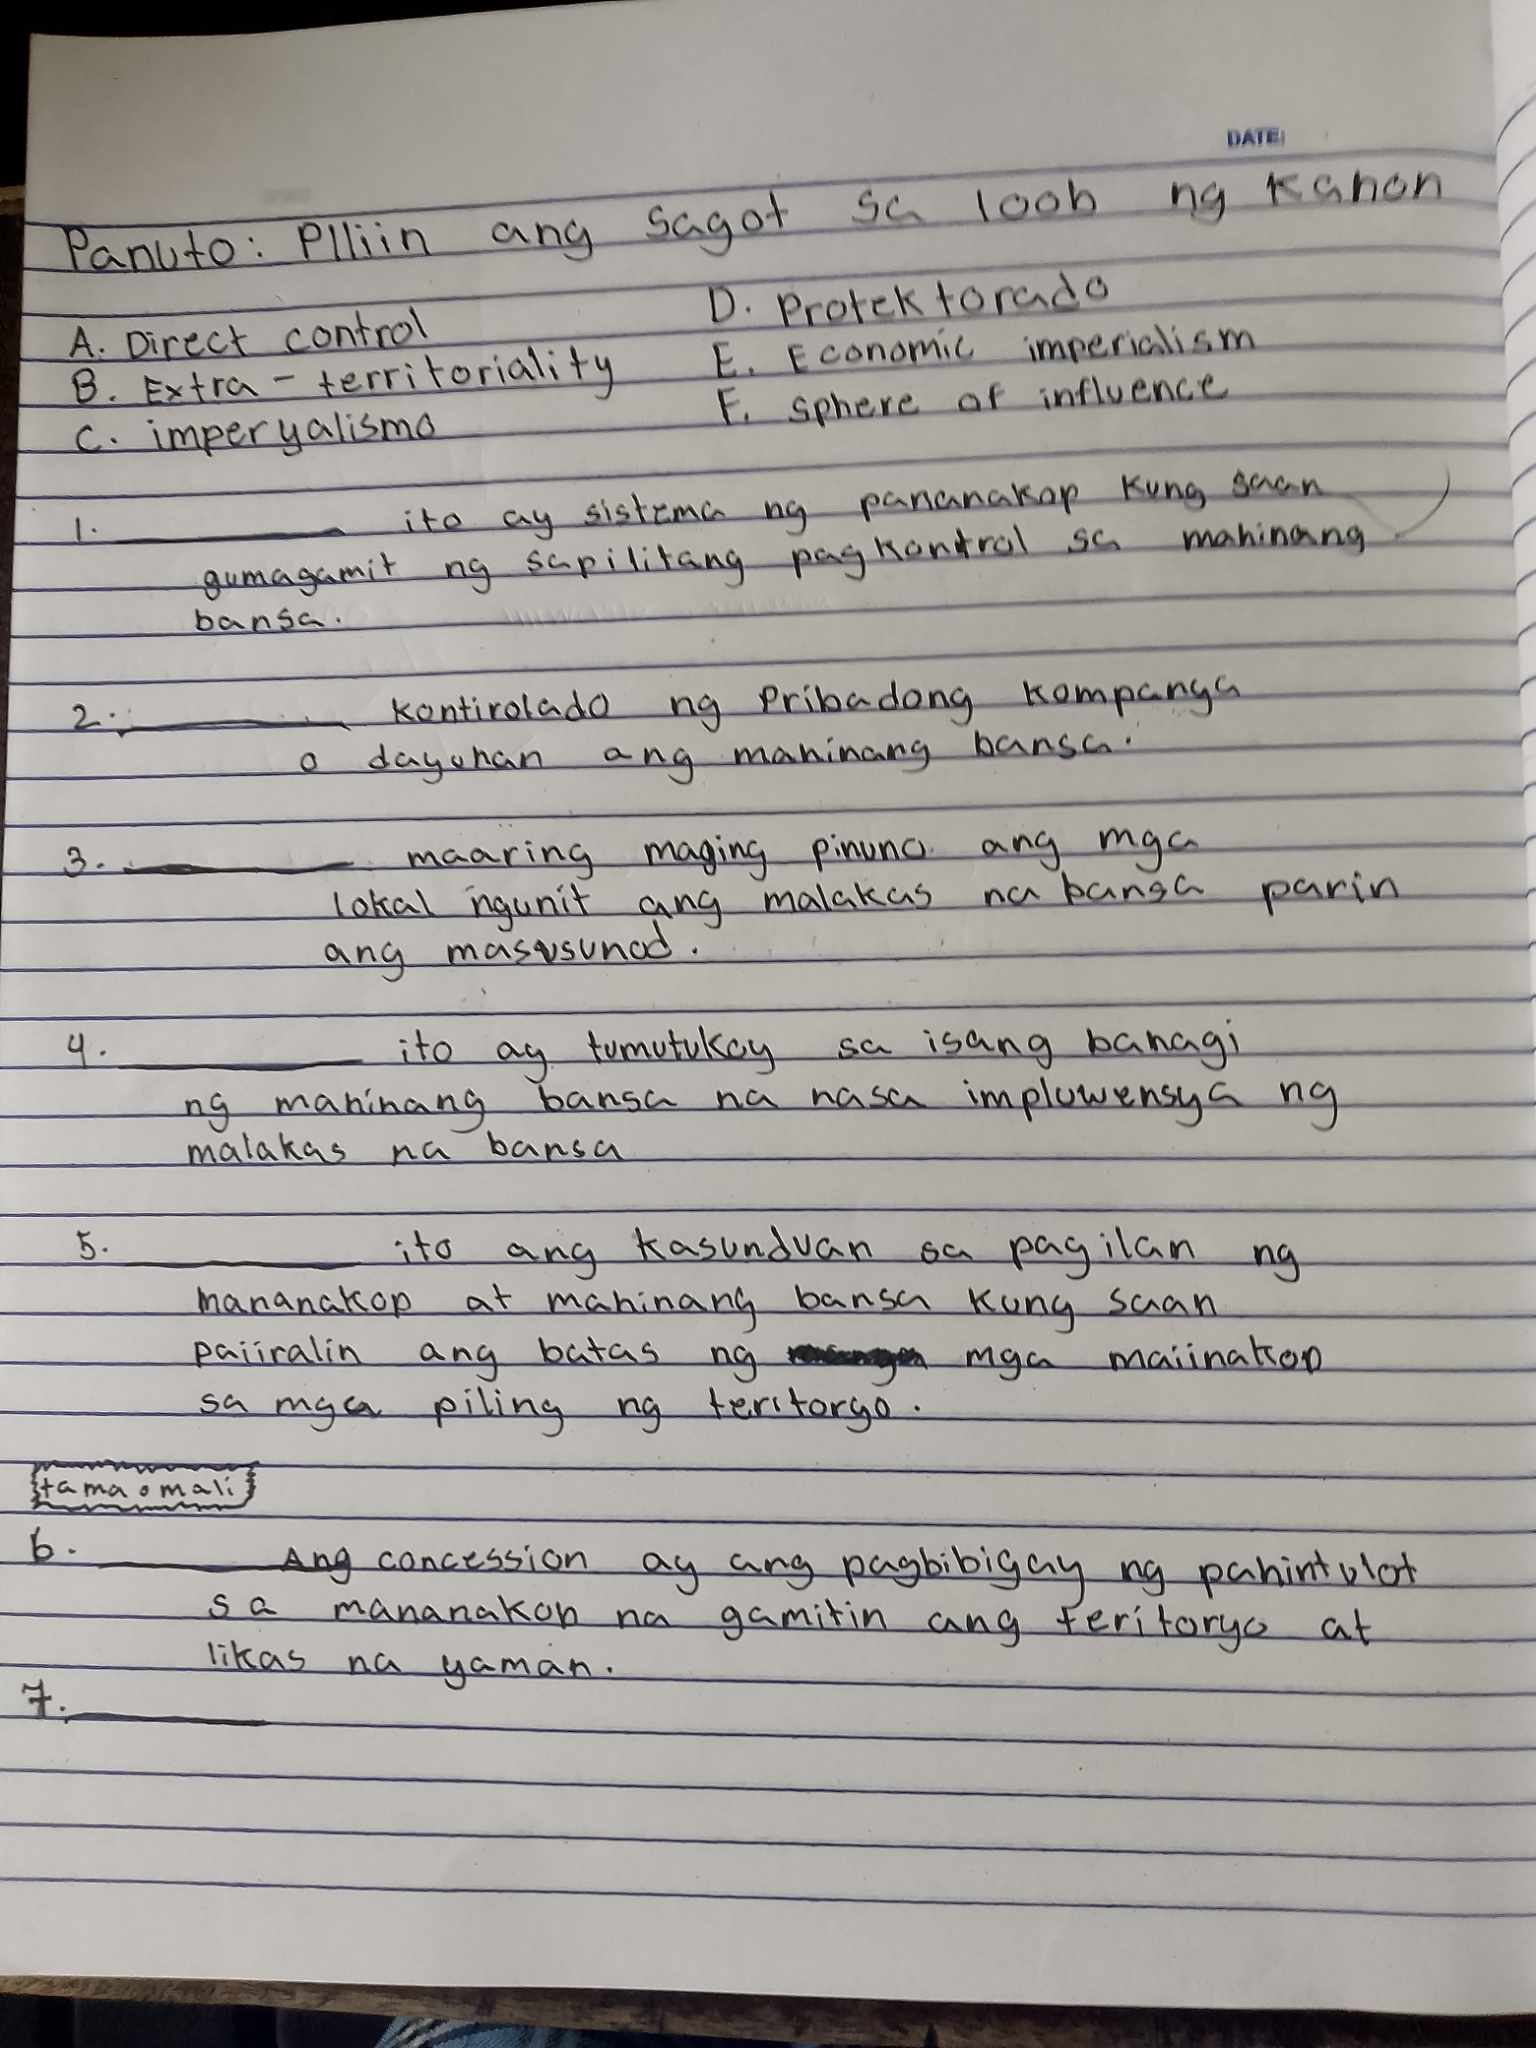 DATE:
Panuto: Plliin ang sagot sa loob ng kahon
A. Direct control
B. Extra - territoriality
C. imperyalismo
D. Protektorado
E. Economic imperialism
F. sphere of influence
1. ito ay sistema ng pananakop kung saan
gumagamit ng sapilitang pagkontrol sa mahinang
bansa.
2. kontirolado ng Pribadong kompanya
o dayuhan ang mahinang bansa.
3. maaring maging pinuno ang mga
lokal ngunit ang malakas na bansa parin
ang masusunod.
4. ito ay tumutukoy sa isang bahagi
ng mahinang bansa na nasa impluwensya ng
malakas na bansa
5. ito ang kasunduan sa pagilan ng
mananakop at mahinang bansa kung saan
paiiralin ang batas ng mga maiinakop
sa mga piling ng teritoryo.
tama o mali
6. Ang concession ay ang pagbibigay ng pahintulot
sa mananakop na gamitin ang teritoryo at
likas na yaman.
7.